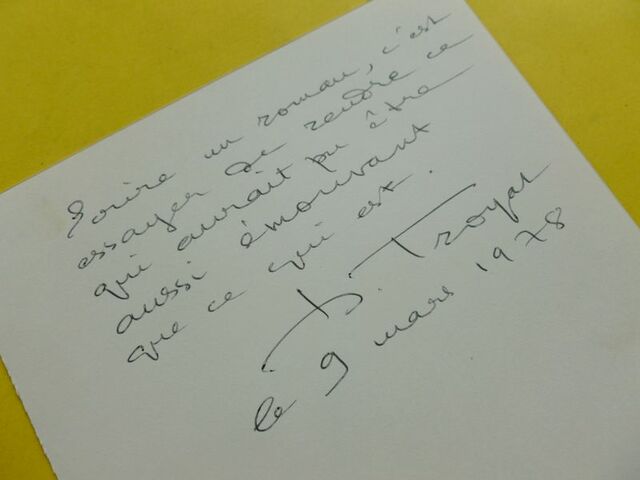 Écrire un roman, c'est
essayer de rendre ce
qui aurait pu être
aussi émouvant
que ce qui est.
H. Troyat
le 9 mars 1978